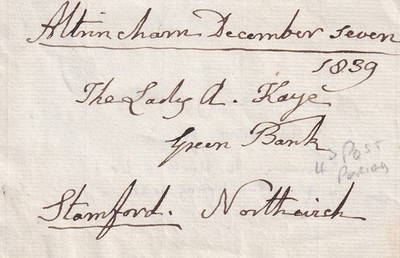 Altrincham December seven
1839
The Lady A. Kaye
Green Bank
4D POST
PERIOD
Stamford. Northwich